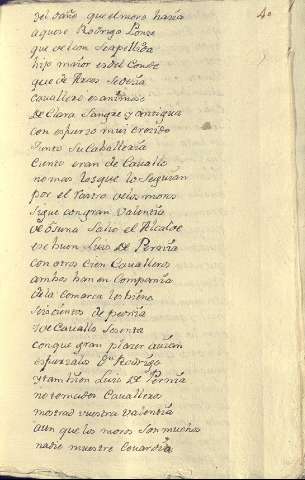 4º
del daño que el moro haria
aquese Rodrigo Ponze
que de leon se apellida
hijo maior es del Conde
que de Arcos se decia
cavallero es animoso
de clara sangre y antigua
con esfuerzo mui crecido
junto su Caballeria
ciento eran de Cavallo
no mas los que lo seguian
por el rastro de los moros
sigue con gran valentia
de osuna salio el Alcaide
ese buen Luis de Pernia
con otros cien Cavalleros
ambos han en Compania
de la comarca les bino
seiscientos de peonia
y de Cavallo sesenta
con que gran placer avian
esfuerzalos Dn Rodrigo
y tambien Luis de Pernia
no temades Cavalleros
mostrad vuestra valentia
aun que los moros son muchos
nadie muestre Covardia